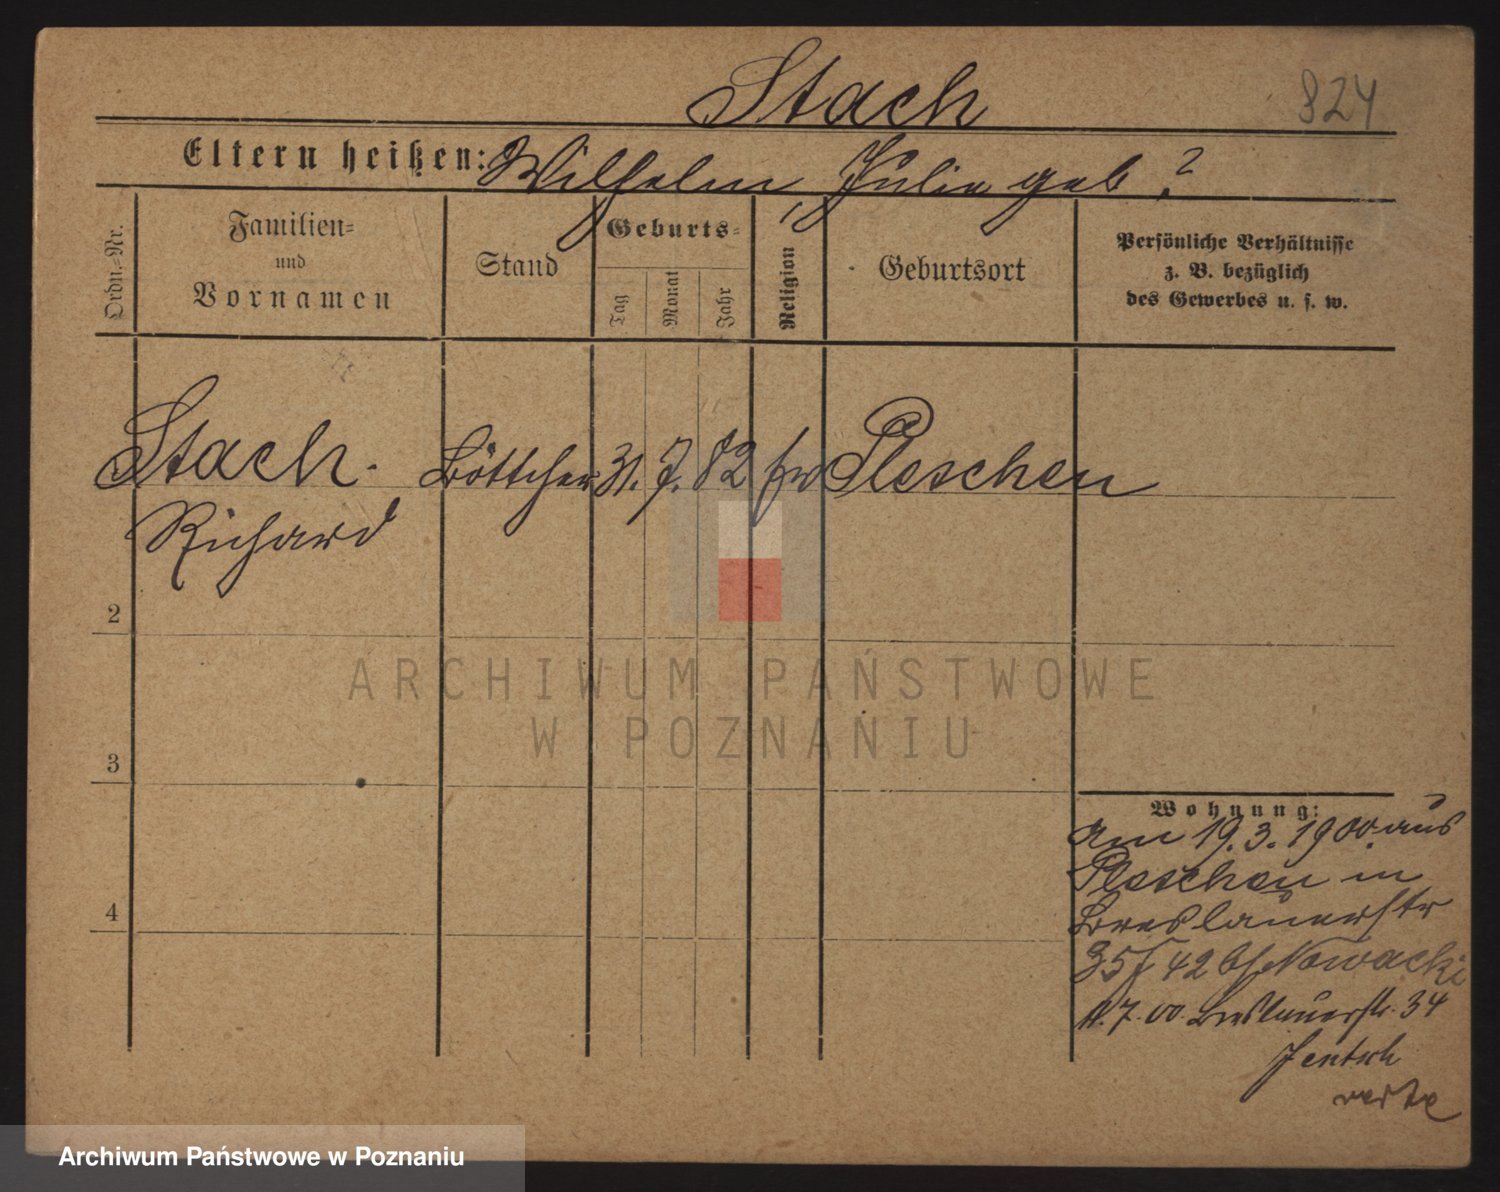 Stach
824
Eltern heißen: Wilhelm, Julie geb. ?
Ordn.-Nr.
Familien-
und
Vornamen
Stand
Geburts-
Tag
Monat
Jahr
Religion
Geburtsort
Persönliche Verhältnisse
z. B. bezüglich
des Gewerbes u. s. w.
Stach. Böttcher 31. 7. 82 Pleschen
Richard
2
3
4
ARCHIWUM PAŃSTWOWE
W POZNANIU
Wohnung:
am 19.3.1900. aus
Pleschen in
Breslauerstr
35 42 Nowacki
7.00. Breslauerstr. 34
Jentsch
verte
Archiwum Państwowe w Poznaniu